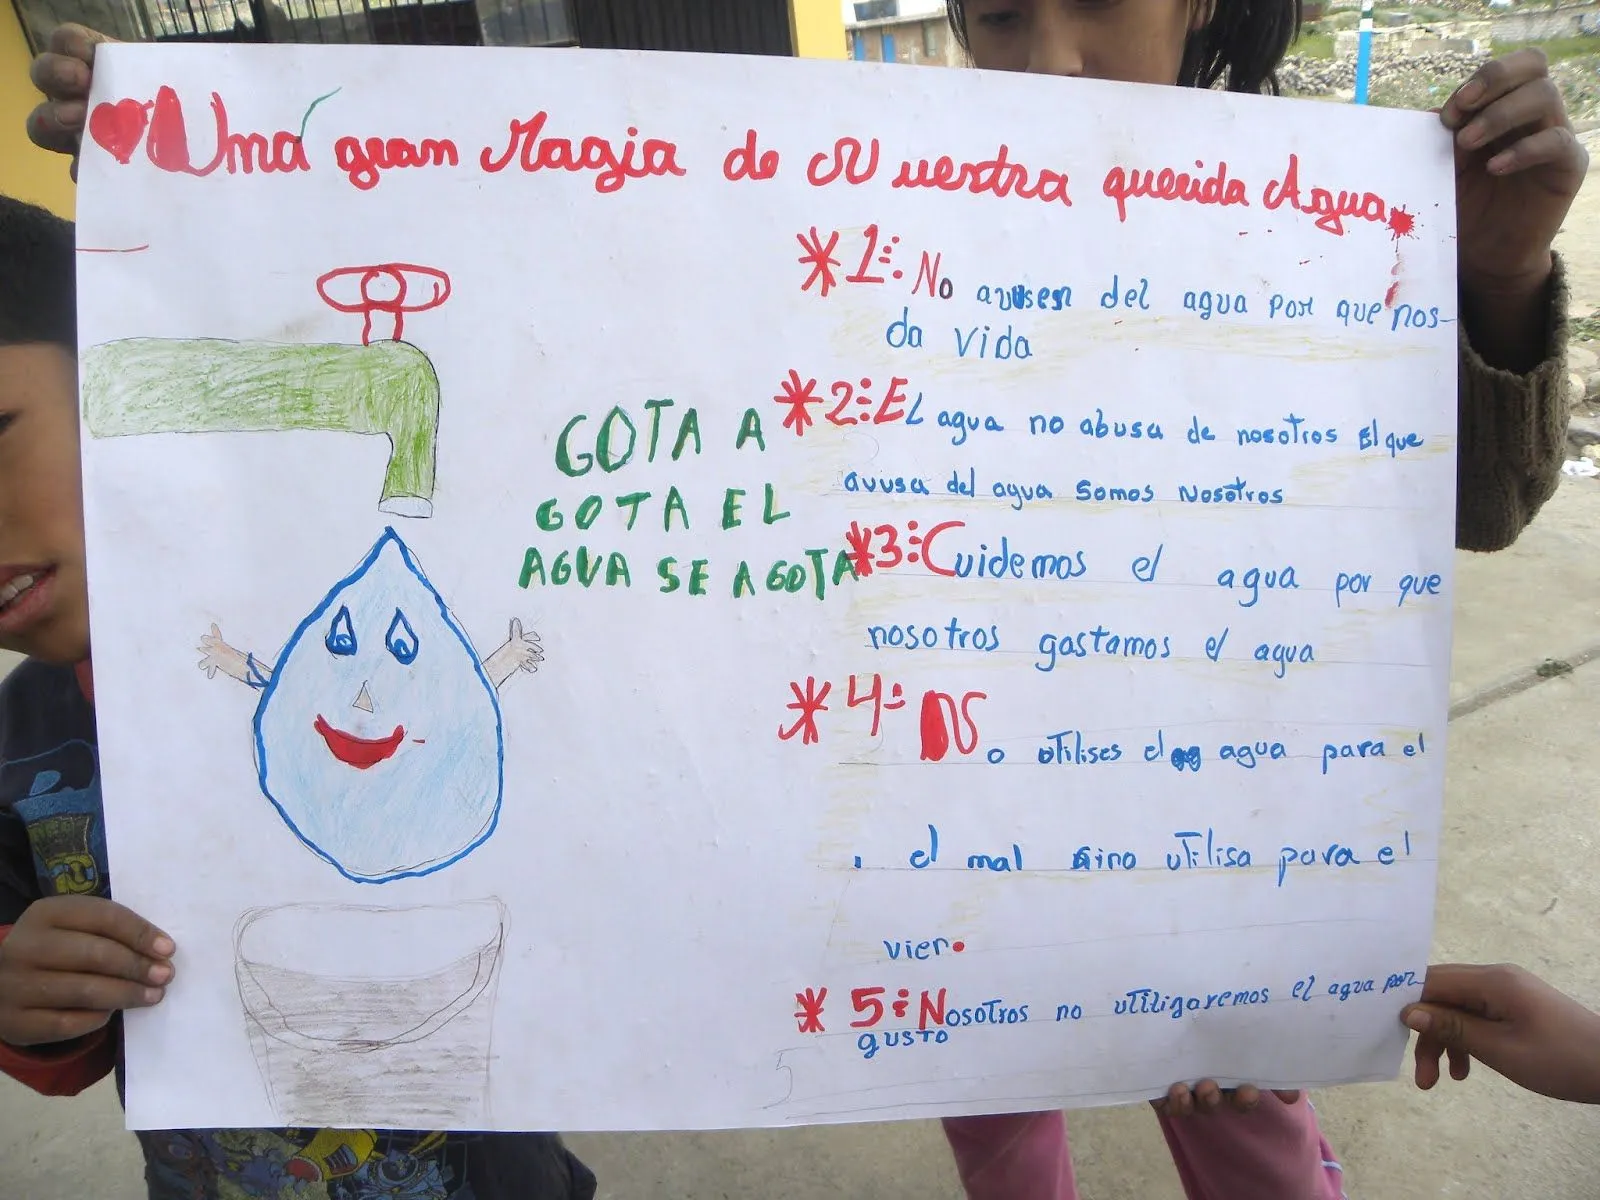 Una gran Magia de Nuestra querida Agua
GOTA A
GOTA EL
AGUA SE AGOTA
*1: No avusen del agua por que nos-
da vida
*2: EL agua no abusa de nosotros El que
avusa del agua somos Nosotros
*3: Cuidemos el agua por que
nosotros gastamos el agua
*4: No utilises el agua para el
el mal sino utilisa para el
vien.
*5: Nosotros no utiligaremos el agua por
gusto